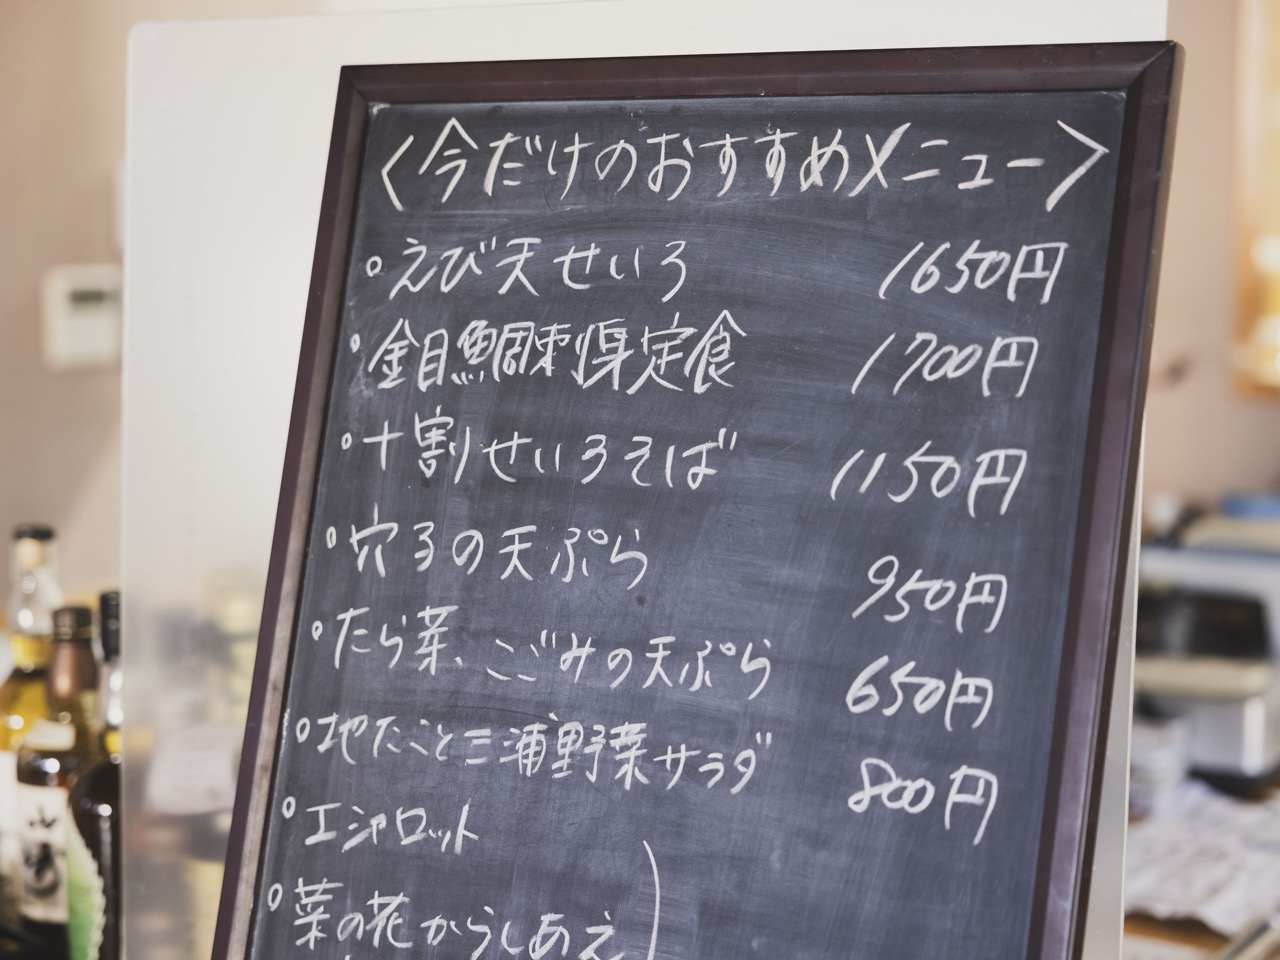 〈今だけのおすすめメニュー〉
○えび天せいろ 1650円
○金目鯛刺身定食 1700円
○十割せいろそば 1150円
○穴子の天ぷら 950円
○たら菜、こごみの天ぷら 650円
○地たこと三浦野菜サラダ 800円
○エシャロット
○菜の花からしあえ